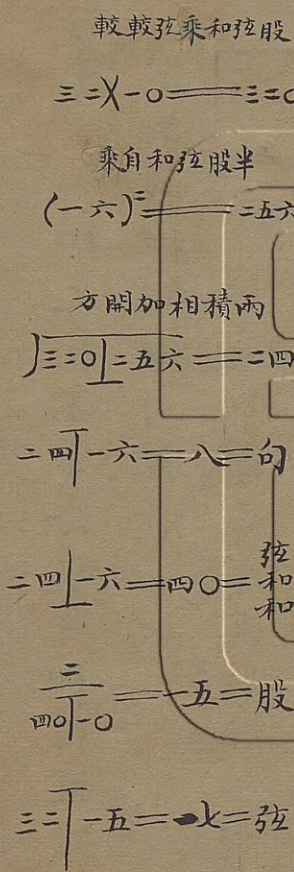 較較弦乘和弦股
三二X一〇＝三二〇
乘自和弦股半
(一六)二＝二五六
方開加相積兩
√三二〇⊥二五六＝二四
二四丅一六＝八＝句
二四⊥一六＝四〇＝弦和和
二
四〇丅一〇＝一五＝股
三二丅一五＝一七＝弦